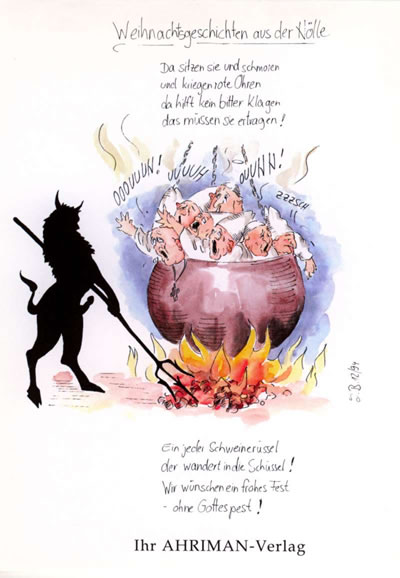 Weihnachtsgeschichten aus der Hölle
Da sitzen sie und schmoren
und kriegen rote Ohren
da hilft kein bitter Klagen
das müssen sie ertragen!
OOOUUUH!
UUUUH
OUUHH!
ZZZSCH
B 12/94
Ein jeder Schweinerüssel
der wandert in die Schüssel!
Wir wünschen ein frohes Fest
- ohne Gottespest!
Ihr AHRIMAN-Verlag